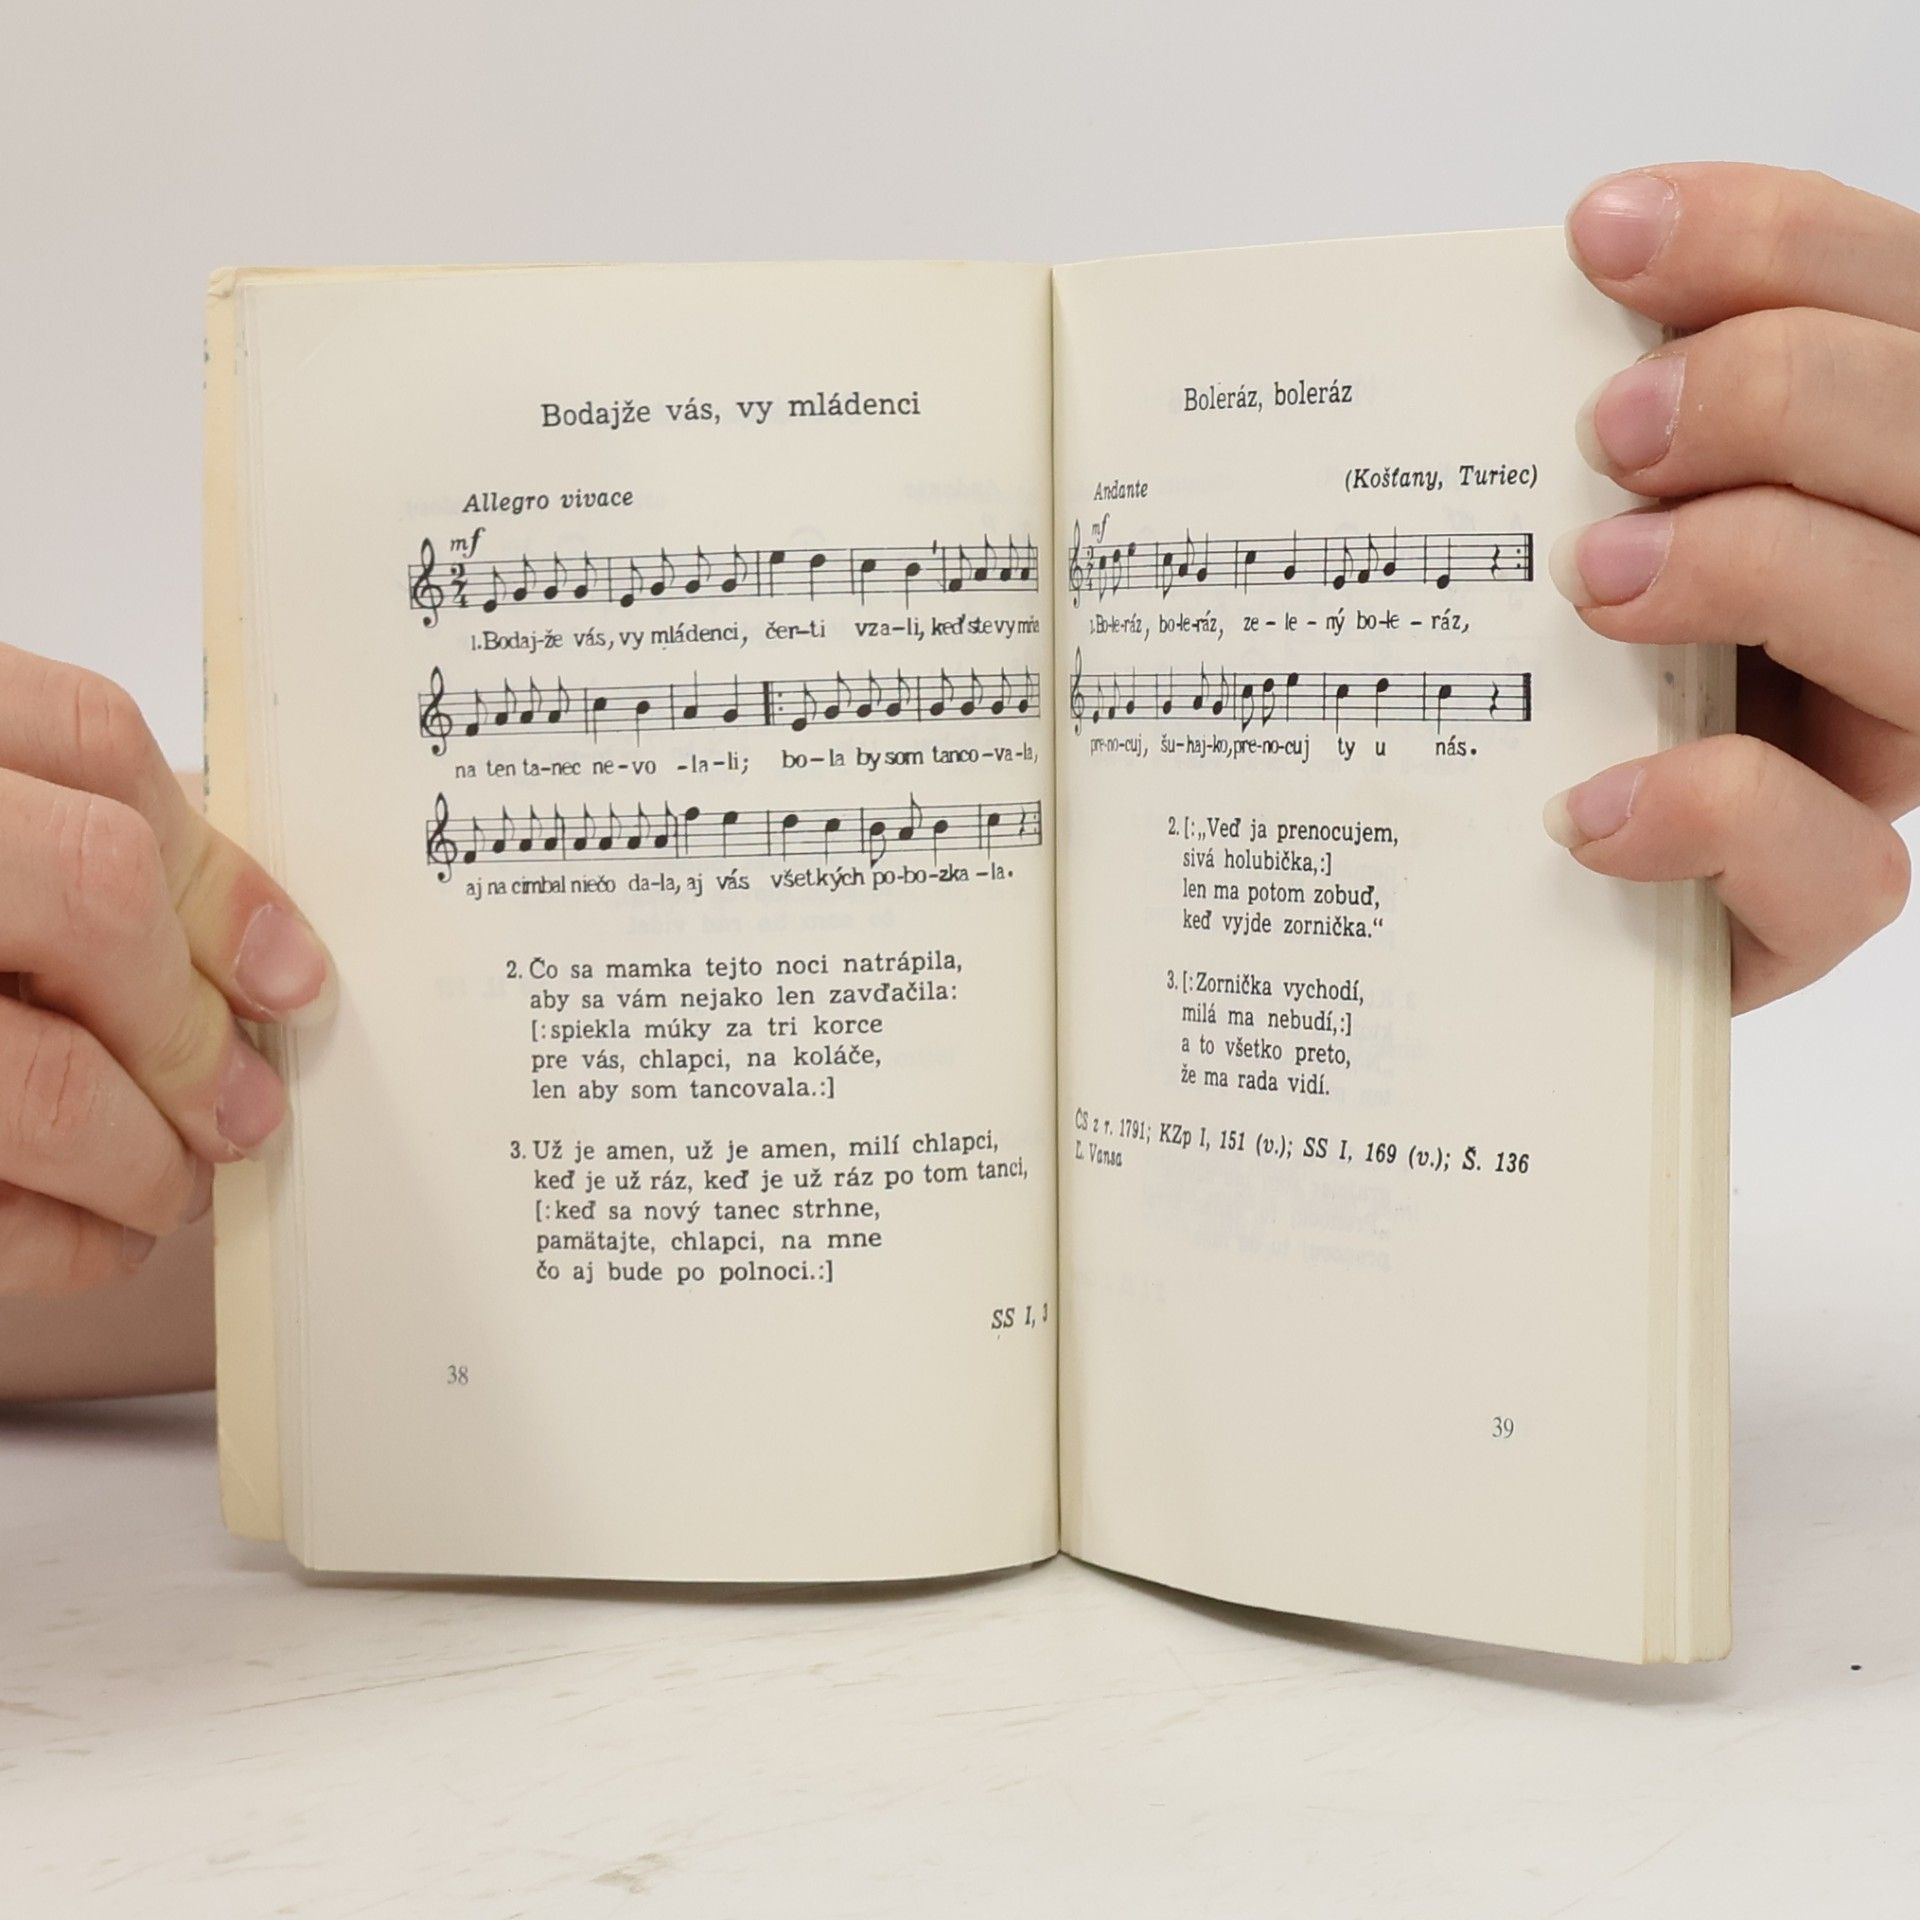 Bodajže vás, vy mládenci
Allegro vivace
mf
2
4
1. Bodaj-že vás, vy mládenci, čer-ti vza-li, keď ste vy mňa
na ten ta-nec ne-vo -la-li; bo-la by som tanco-va-la,
aj na cimbal niečo da-la, aj vás všetkých po-bo-zka -la.
2. Čo sa mamka tejto noci natrápila,
aby sa vám nejako len zavďačila:
[:spiekla múky za tri korce
pre vás, chlapci, na koláče,
len aby som tancovala.:]
3. Už je amen, už je amen, milí chlapci,
keď je už ráz, keď je už ráz po tom tanci,
[:keď sa nový tanec strhne,
pamätajte, chlapci, na mne
čo aj bude po polnoci.:]
SS I, 3
38
Boleráz, boleráz
Andante (Košťany, Turiec)
mf
2
4
1. Bo-le-ráz, bo-le-ráz, ze - le - ný bo-le - ráz,
pre-no-cuj, šu-haj-ko, pre-no-cuj ty u nás.
2. [:„Veď ja prenocujem,
sivá holubička,:]
len ma potom zobuď,
keď vyjde zornička.“
3. [:Zornička vychodí,
milá ma nebudí,:]
a to všetko preto,
že ma rada vidí.
ČS z r. 1791; KZp I, 151 (v.); SS I, 169 (v.); Š. 136
Ľ. Vansa
39